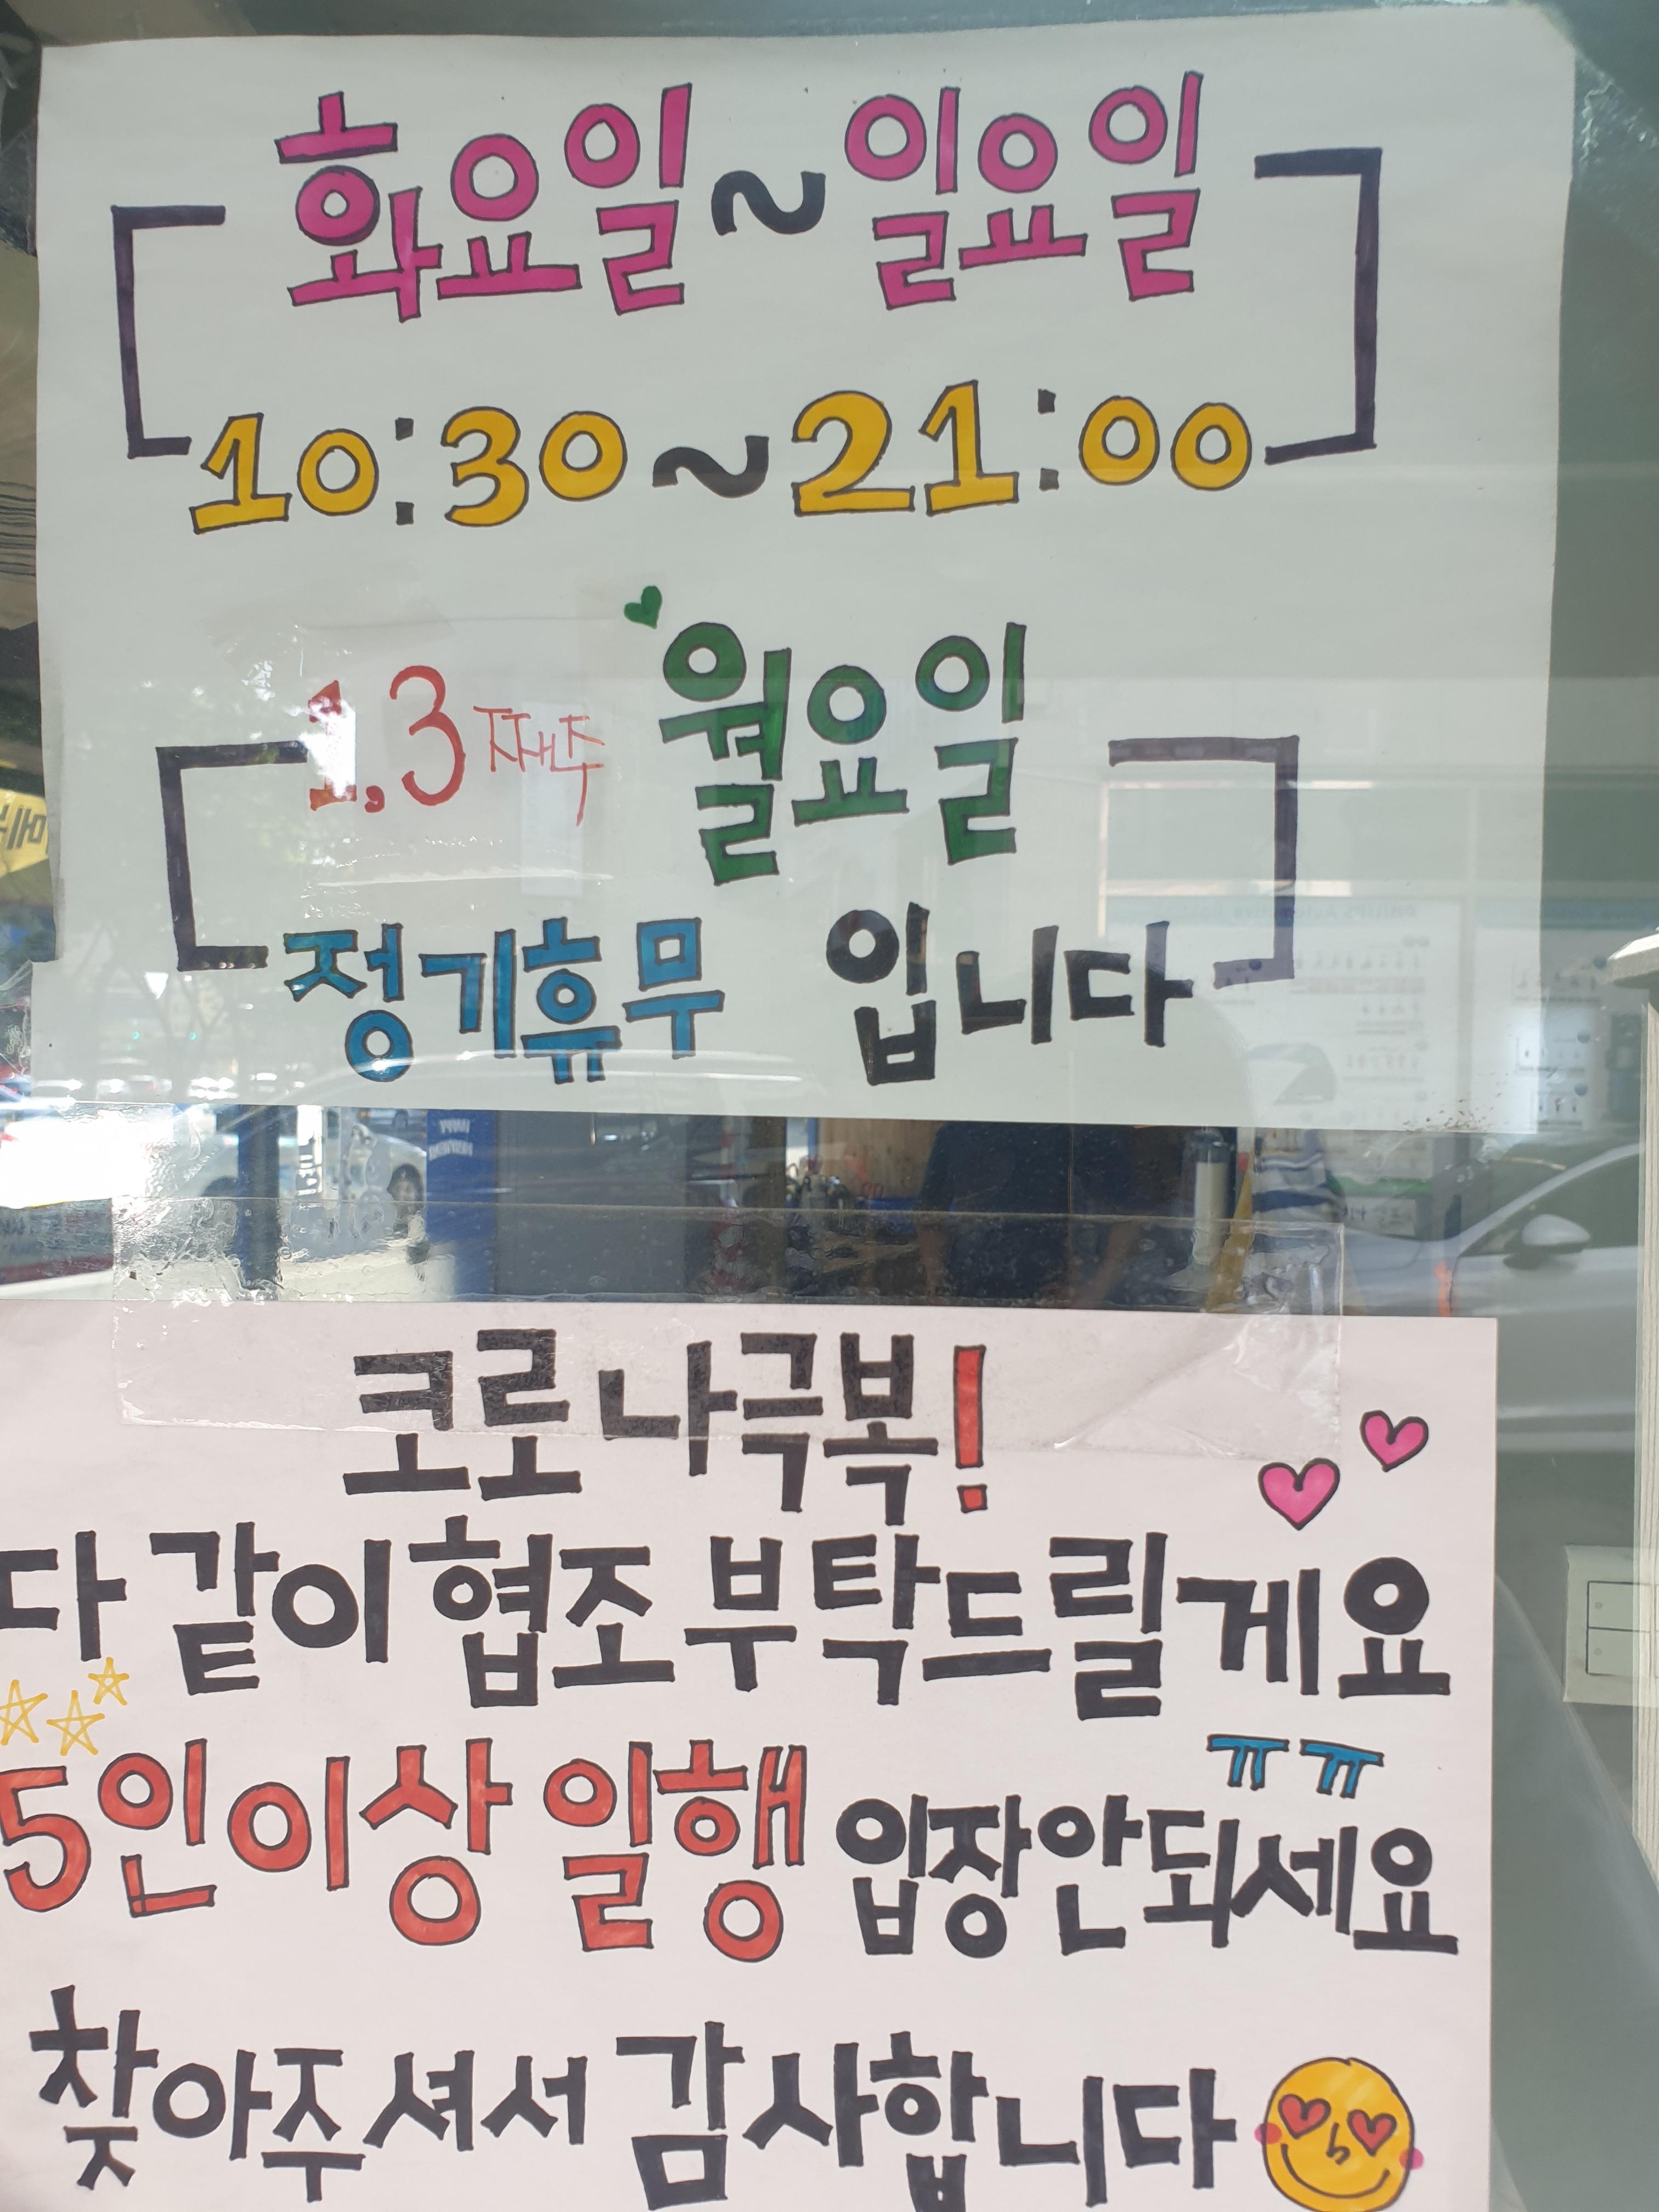 화요일~일요일
10:30~21:00
1,3째주 월요일
정기휴무 입니다
코로나극복!
다 같이 협조 부탁드릴게요
ㅠㅠ
5인이상 일행 입장안되세요
찾아주셔서 감사합니다